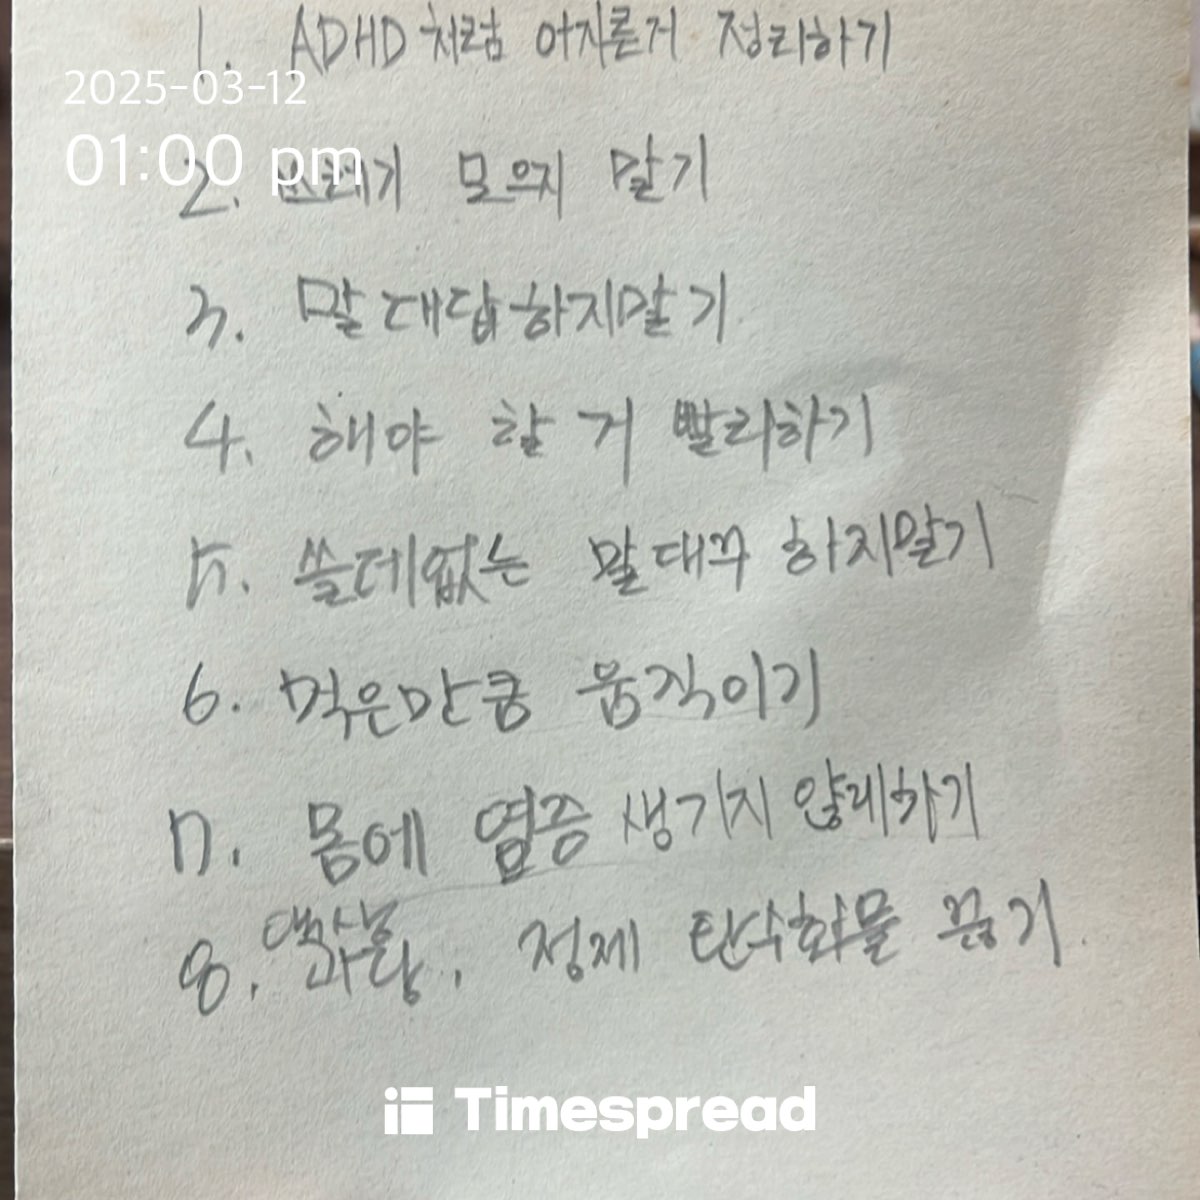 1. ADHD처럼 어지른거 정리하기
2025-03-12
01:00 pm
2. 쓰레기 모으지 말기
3. 말대답하지말기
4. 해야 할 거 빨리하기
5. 쓸데없는 말대꾸 하지말기
6. 먹은만큼 움직이기
7. 몸에 염증 생기지 않게하기
액상
8. 과당, 정제 탄수화물 끊기.
Timespread